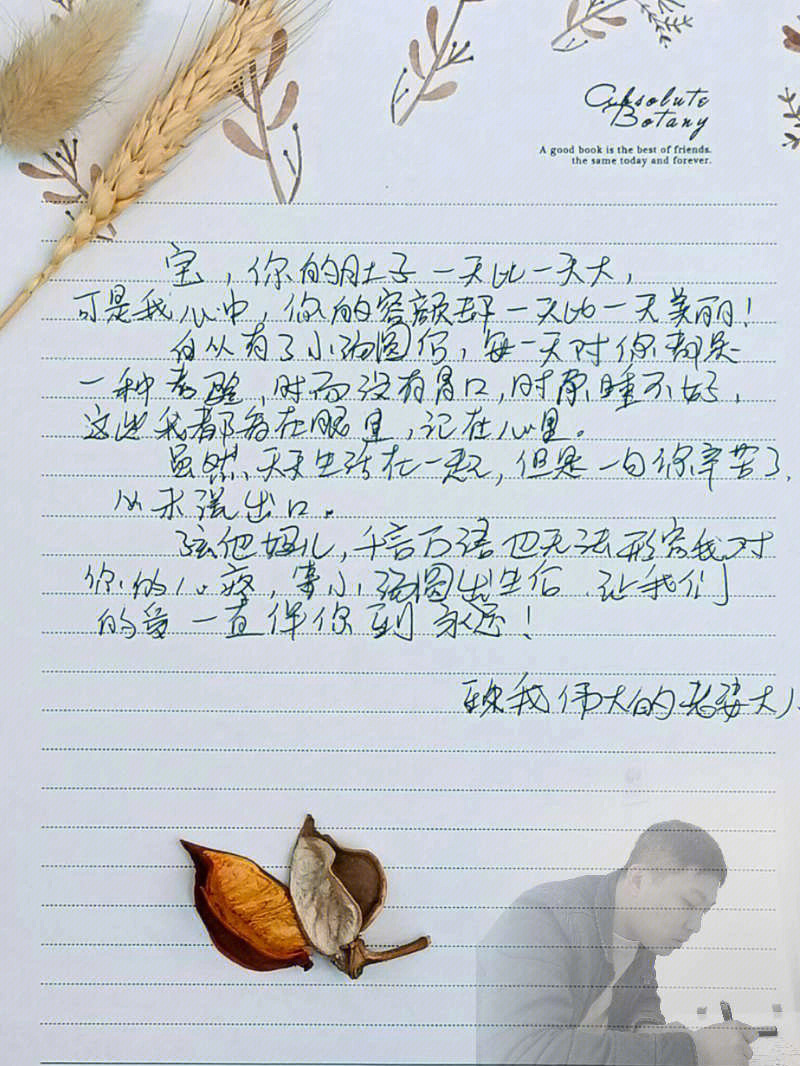 Absolute
Botany
A good book is the best of friends.
the same today and forever.
宝，你的肚子一天比一天大，
可是我心中，你的容颜却一天比一天美丽！
自从有了小汤圆后，每一天对你都是
一种考验，时而没有胃口，时而睡不好，
这些我都看在眼里，记在心里。
虽然天天生活在一起，但是一句你辛苦了，
从未说出口。
孩他妈儿，千言万语也无法形容我对
你的心疼，等小汤圆出生后，让我们
的爱一直伴你到永远！
致我伟大的老婆大人